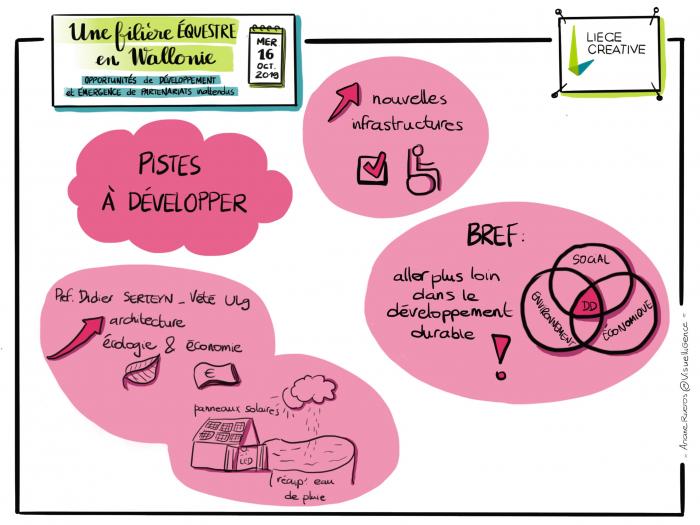 Une filière ÉQUESTRE
en Wallonie
OPPORTUNITÉS de DÉVELOPPEMENT
et ÉMERGENCE de PARTENARIATS inattendus
MER
16
OCT.
2019
LIEGE
CREATIVE
nouvelles
infrastructures
PISTES
À DÉVELOPPER
BREF:
aller plus loin
dans le
développement
durable
!
SOCIAL
ENVIRONNEMENT
DD
ÉCONOMIQUE
Prof. Didier SERTEYN _ Vété Ulg
architecture
écologie & économie
€
panneaux solaires
LED
récup' eau
de pluie
- Ariane Rueros @Visuelligence -